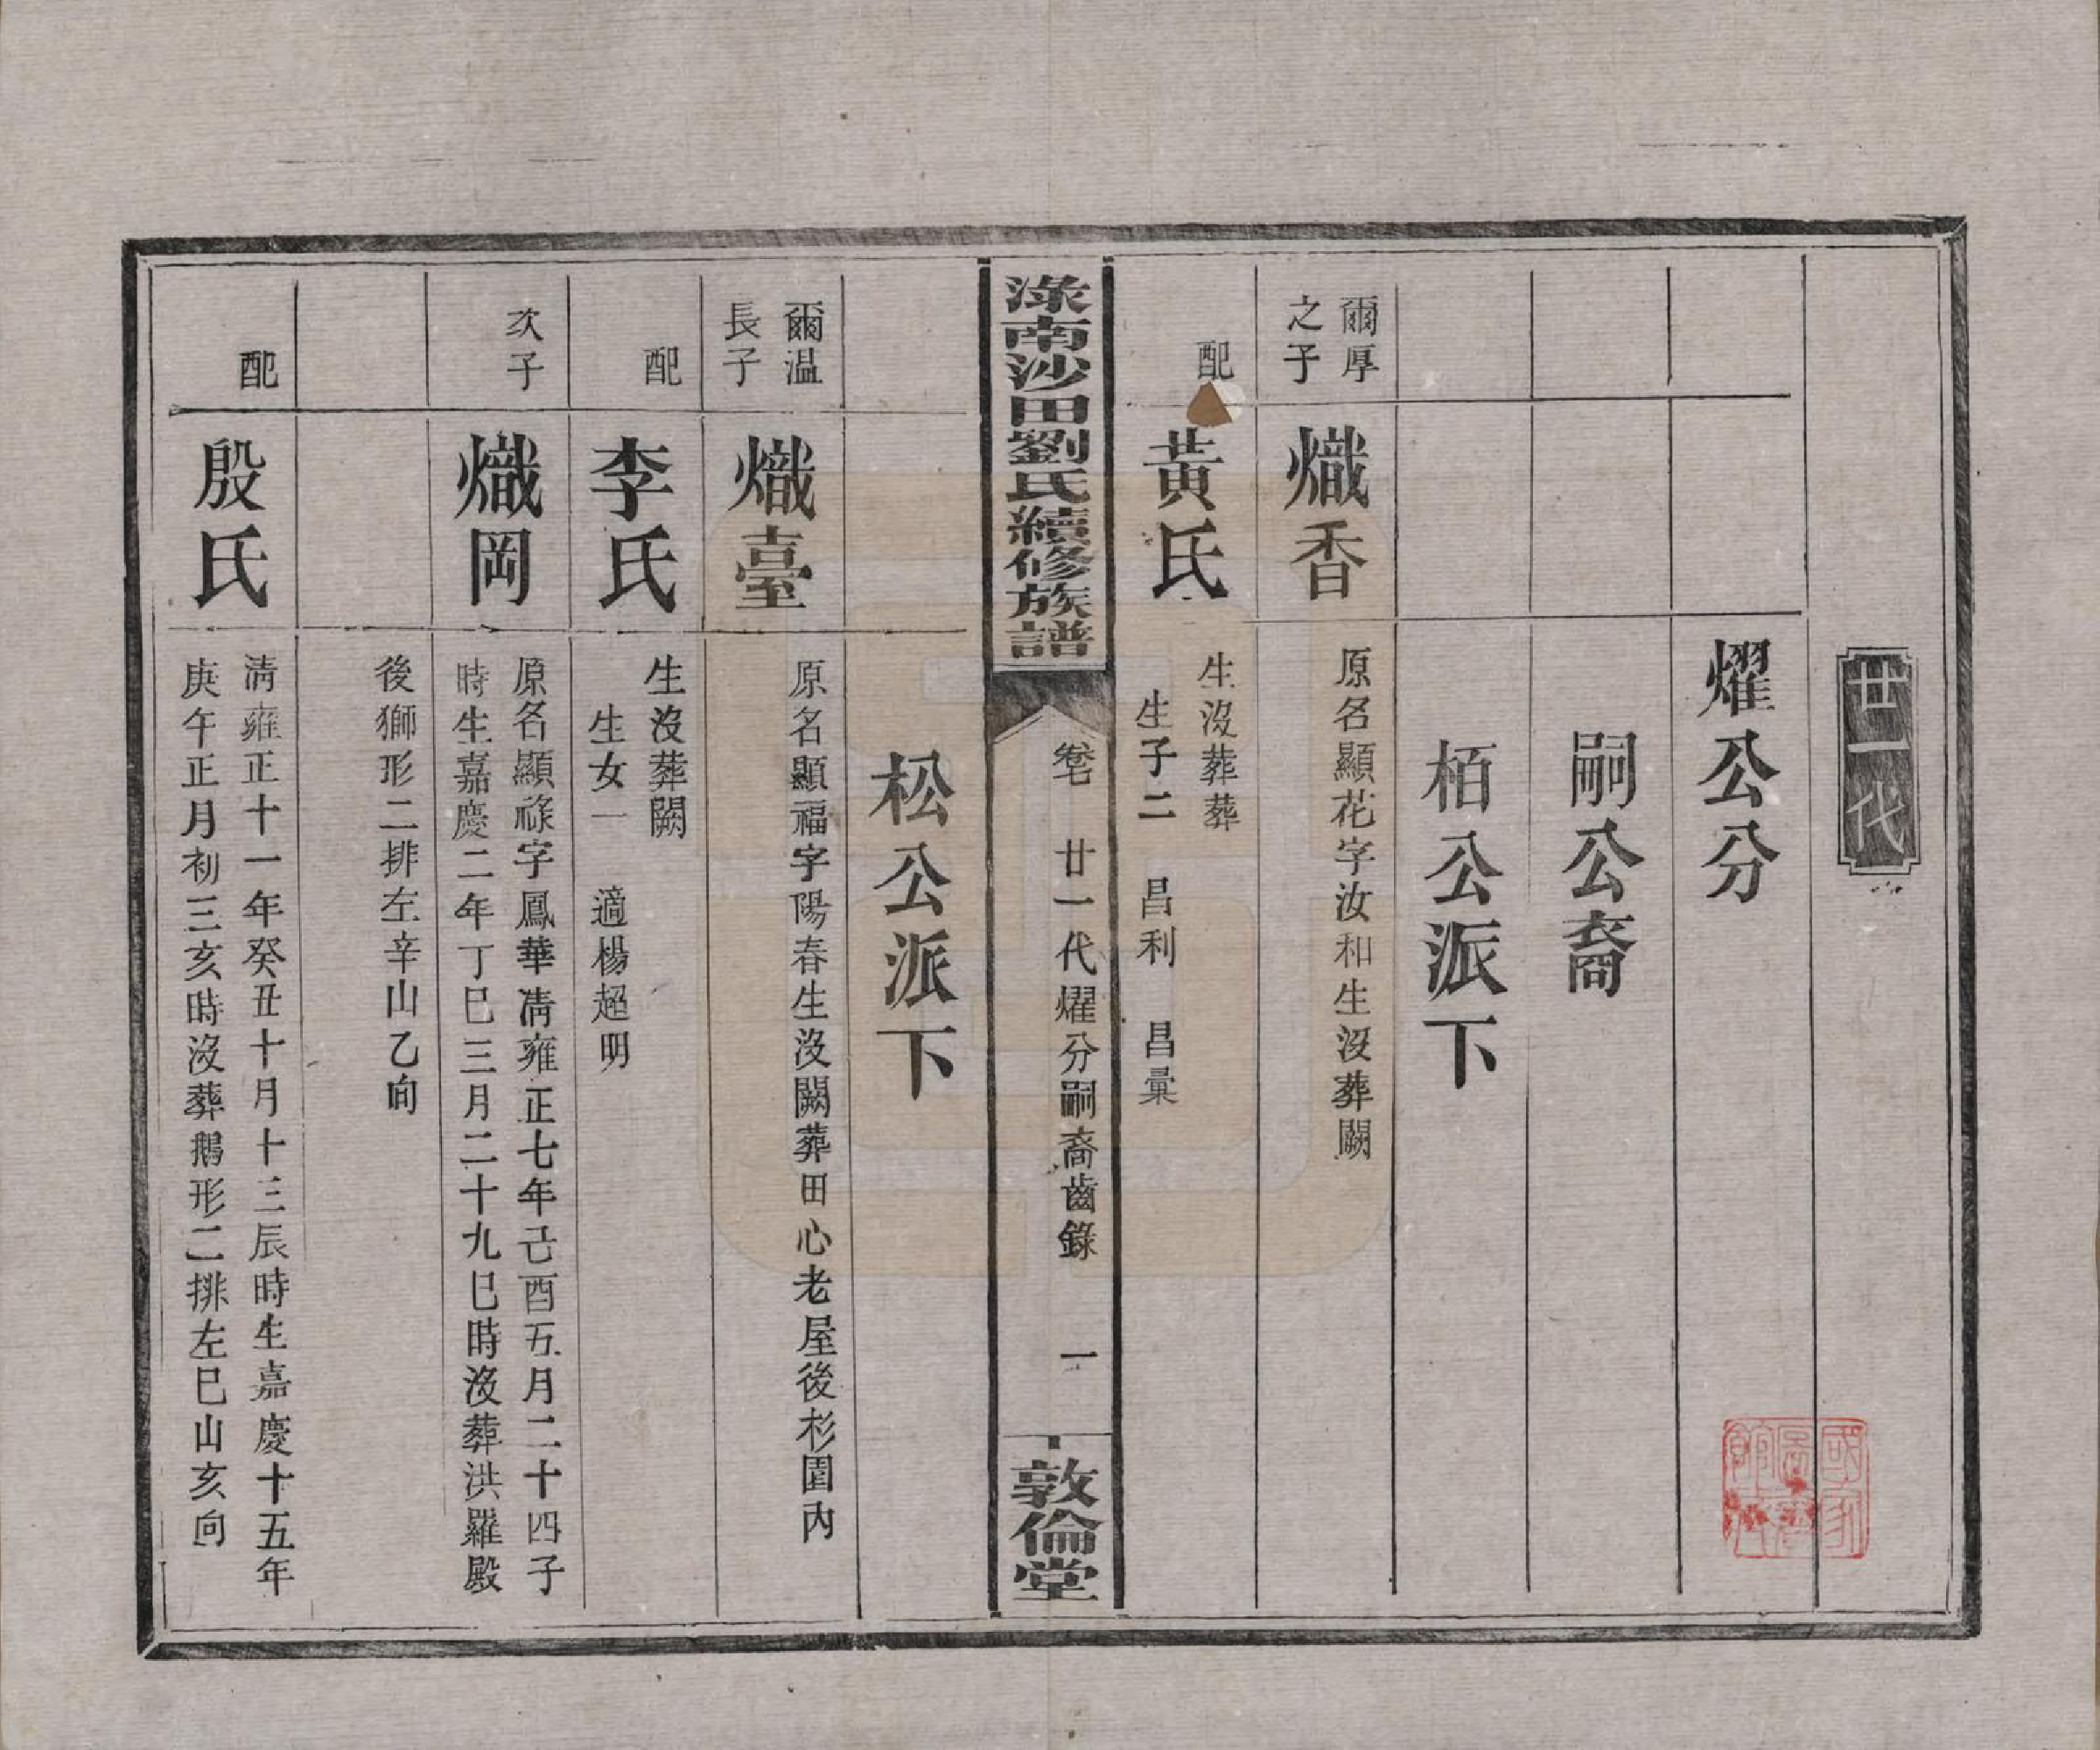 廿一代
燿公分
嗣公裔
栢公派下
爾厚
之子
熾香
原名顯花字汝和生沒葬闕
配
黃氏
生沒葬葬
生子二 昌利 昌彙
淥南沙田劉氏續修族譜
卷七 廿一代燿分嗣裔齒錄 一
敦倫堂
松公派下
爾温
長子
熾臺
原名顯福字陽春生沒闕葬田心老屋後杉園內
配
李氏
生沒葬闕
生女一 適楊超明
次子
熾岡
原名顯祿字鳳華清雍正七年己酉五月二十四子
時生嘉慶二年丁巳三月二十九巳時沒葬洪羅殿
後獅形二排左辛山乙向
配
殷氏
清雍正十一年癸丑十月十三辰時生嘉慶十五年
庚午正月初三亥時沒葬鵝形二排左巳山亥向